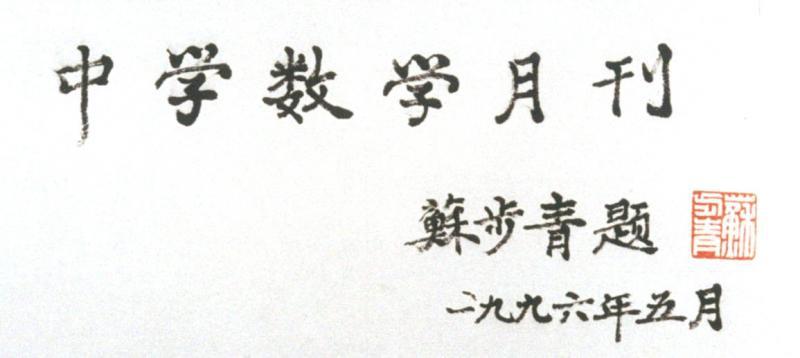 中学数学月刊
蘇步青题
蘇步青
一九九六年五月